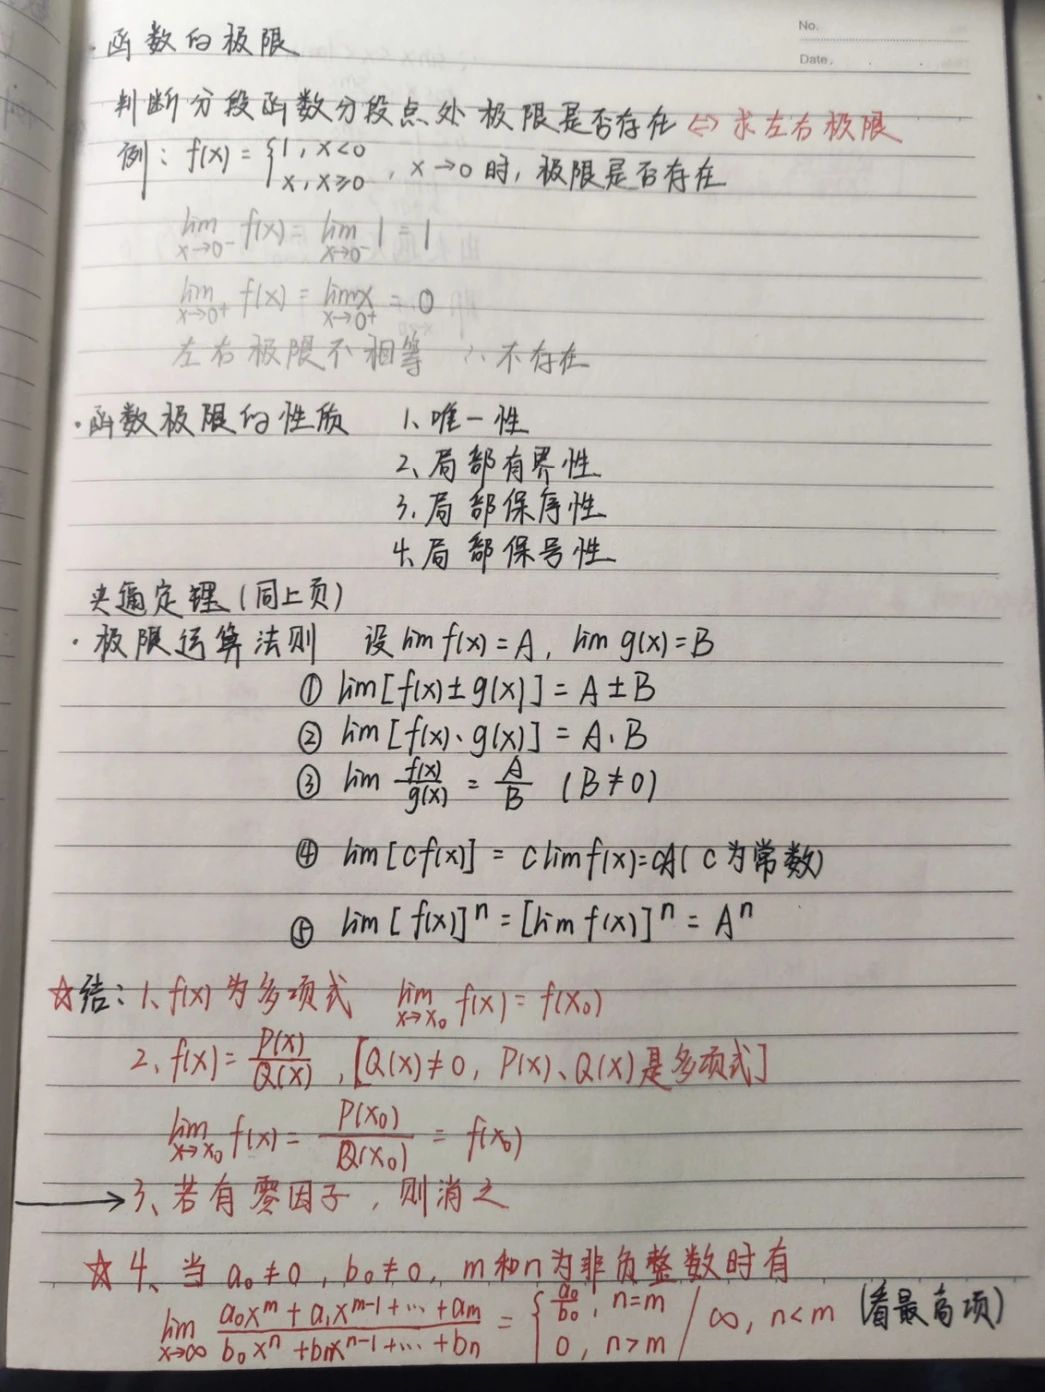 No.
Date.
·函数的极限
判断分段函数分段点处极限是否存在 ⇔ 求左右极限
例: f(x) = {1, x<0 ; x, x≥0 , x→0 时, 极限是否存在
lim_{x→0⁻} f(x) = lim_{x→0⁻} 1 = 1
lim_{x→0⁺} f(x) = lim_{x→0⁺} x = 0
左右极限不相等 ∴不存在
·函数极限的性质 1、唯一性
2、局部有界性
3、局部保序性
4、局部保号性
夹逼定理(同上页)
·极限运算法则 设 lim f(x) = A, lim g(x) = B
① lim[f(x)±g(x)] = A±B
② lim[f(x)·g(x)] = A·B
③ lim f(x)/g(x) = A/B (B≠0)
④ lim[cf(x)] = c lim f(x) = cA (c为常数)
⑤ lim[f(x)]ⁿ = [lim f(x)]ⁿ = Aⁿ
☆结: 1、f(x)为多项式 lim_{x→x₀} f(x) = f(x₀)
2、f(x) = P(x)/Q(x), [Q(x)≠0, P(x)、Q(x)是多项式]
lim_{x→x₀} f(x) = P(x₀)/Q(x₀) = f(x₀)
→3、若有零因子,则消之
☆4、当 a₀≠0, b₀≠0, m和n为非负整数时有
lim_{x→∞} (a₀x^m + a₁x^{m-1} + … + a_m)/(b₀x^n + b₁x^{n-1} + … + b_n) = {a₀/b₀, n=m ; 0, n>m / ∞, n<m (看最高项)